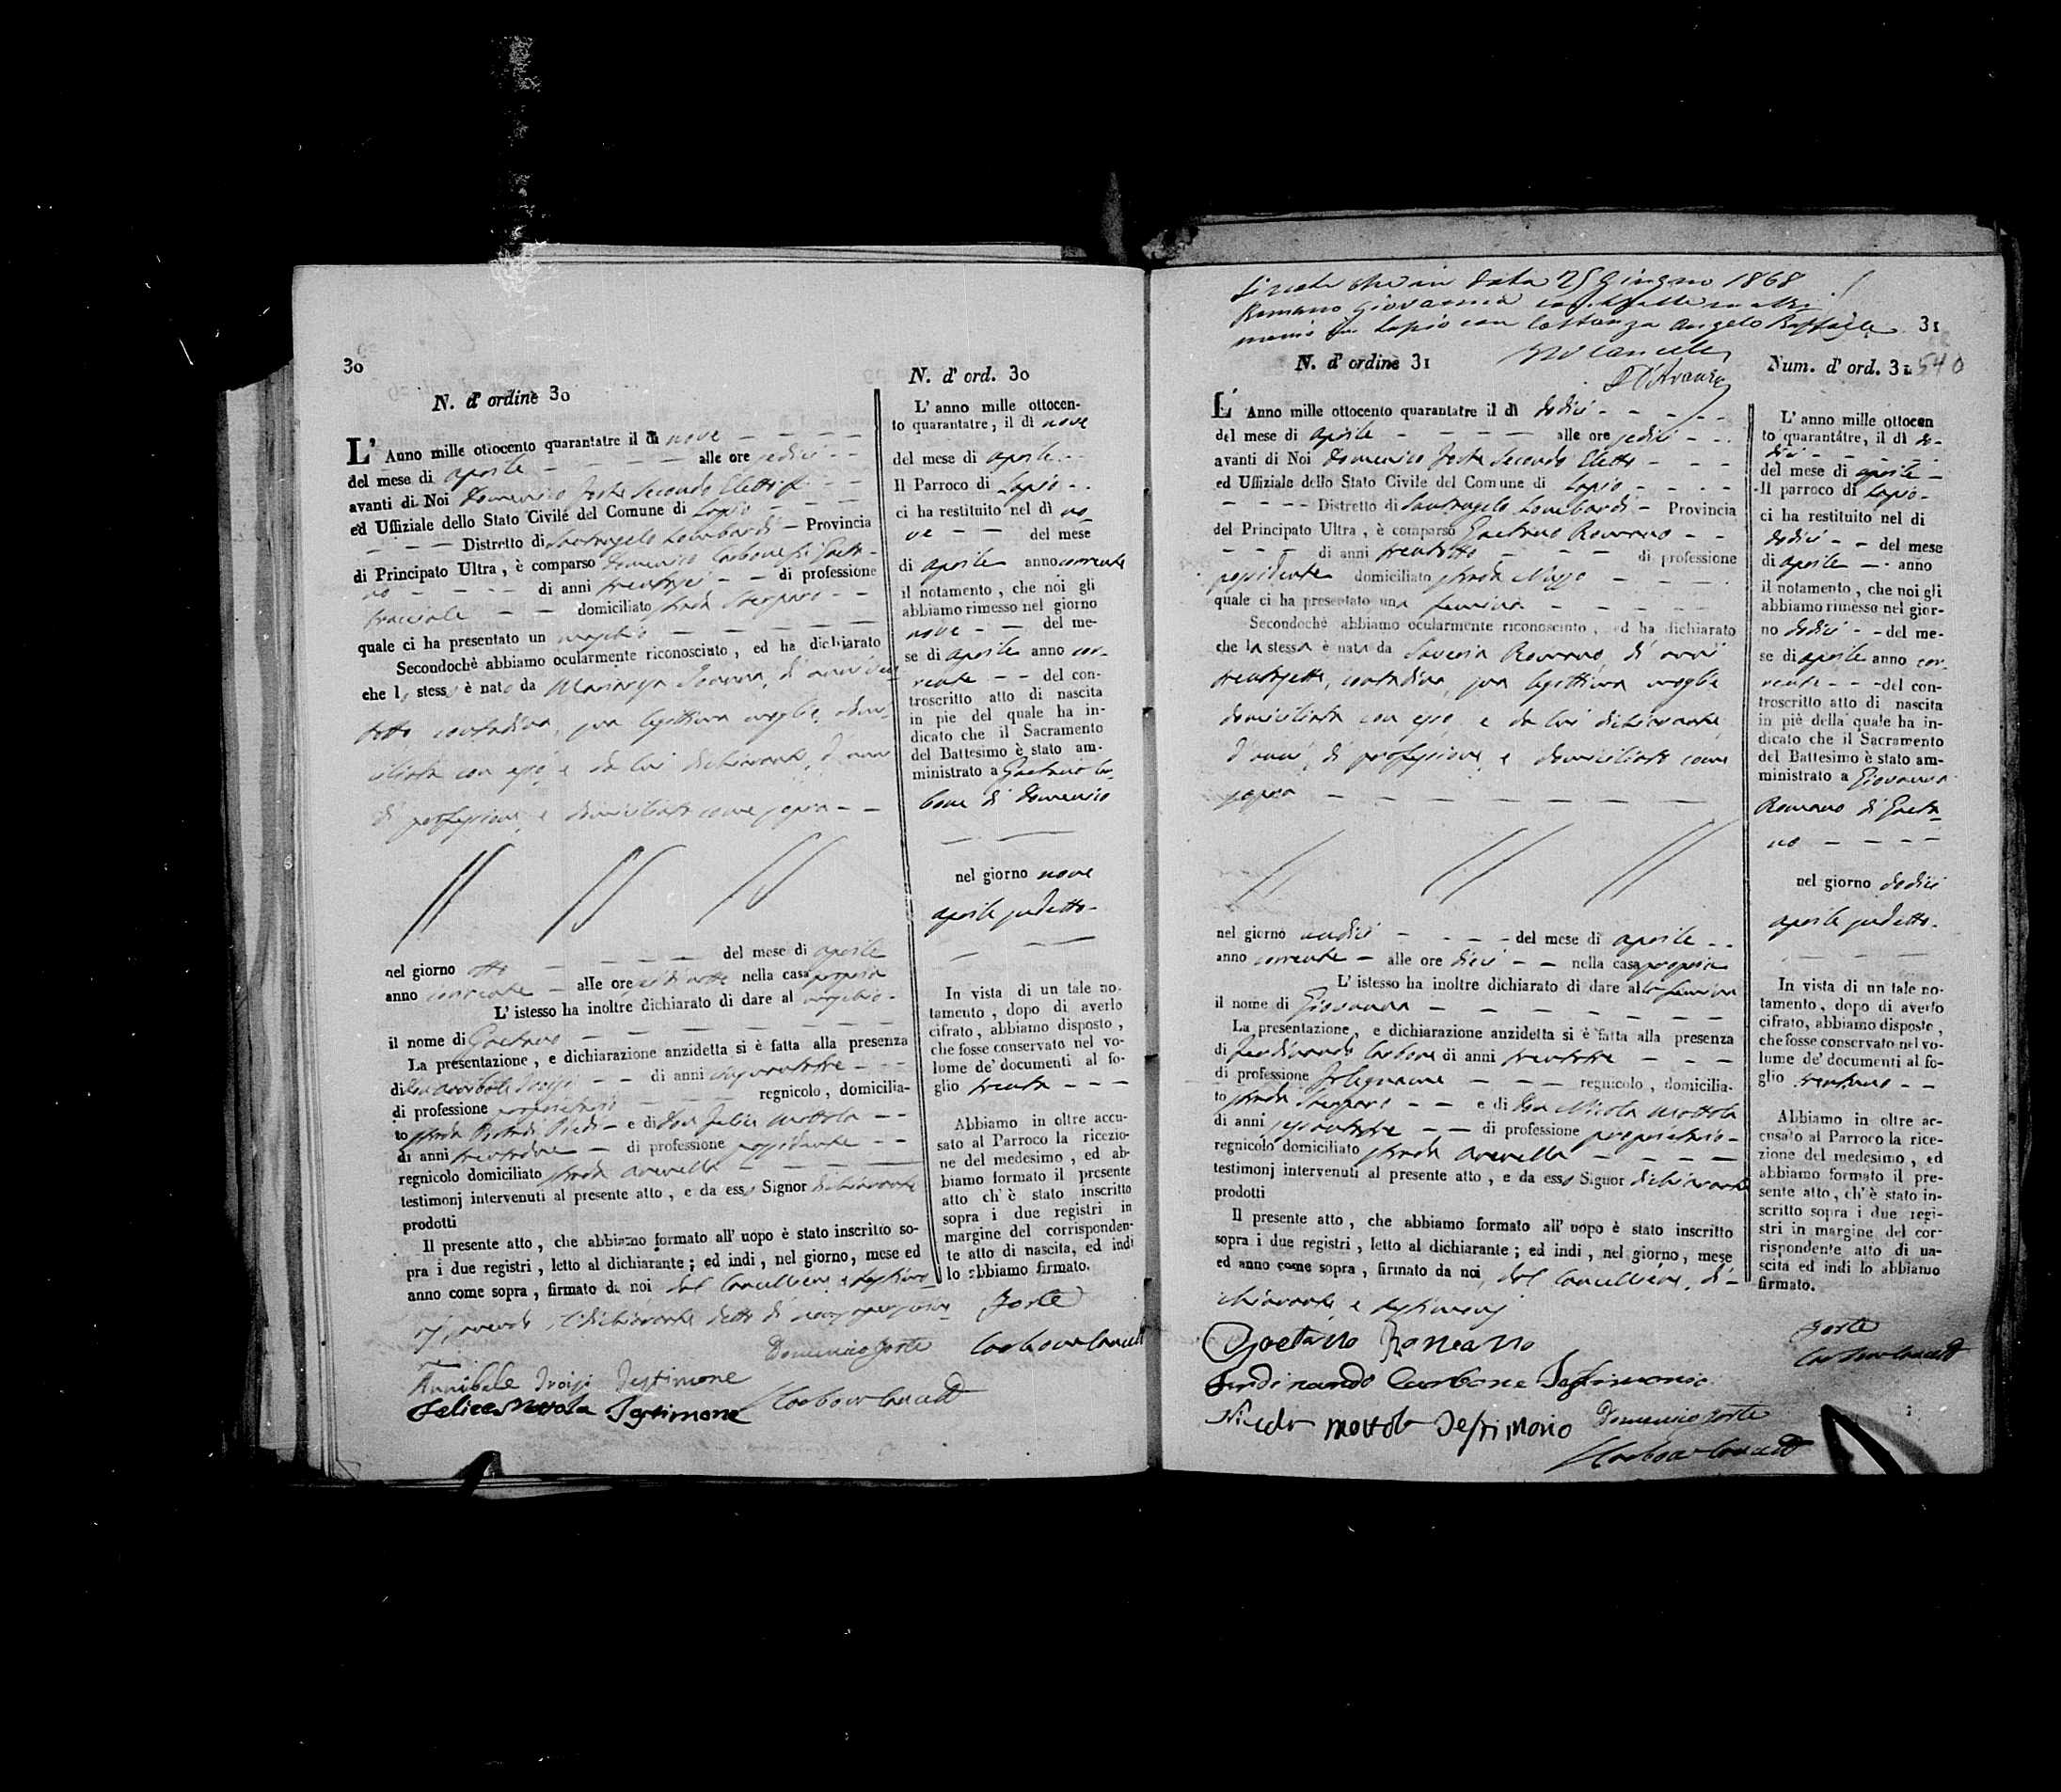 30
N. d' ordine 30
L' Anno mille ottocento quarantatre il dì nove
del mese di aprile alle ore sedici
avanti di Noi Domenico Forte Secondo Eletto
ed Uffiziale dello Stato Civile del Comune di Lapio
Distretto di Santangelo Lombardi – Provincia
di Principato Ultra, è comparso Domenico Carbone di Gaeta-
no di anni trentasei di professione
bracciale domiciliato strada
quale ci ha presentato un maschio
Secondochè abbiamo ocularmente riconosciuto, ed ha dichiarato
che lo stesso è nato da di anni
contadina, sua legittima moglie, domi-
ciliata con esso, e da lui dichiarante, d'anni
di professione, e domiciliato come sopra
nel giorno otto del mese di aprile
anno corrente – alle ore nella casa propria
L' istesso ha inoltre dichiarato di dare al maschio
il nome di Gaetano
La presentazione, e dichiarazione anzidetta si è fatta alla presenza
di Don Annibale Troisi di anni
di professione proprietario regnicolo, domicilia-
to strada – e di Don Felice Mottola
di anni – di professione possidente
regnicolo domiciliato strada
testimonj intervenuti al presente atto, e da esso Signor dichiarante
prodotti
Il presente atto, che abbiamo formato all' uopo è stato inscritto so-
pra i due registri, letto al dichiarante; ed indi, nel giorno, mese ed
anno come sopra, firmato da noi dal Cancelliere, e testimo-
nj, avendo il dichiarante detto di non saper scrivere
Domenico Forte
Annibale Troisi Testimone
Felice Mottola Testimone
Carbone Cancell
N. d' ord. 30
L' anno mille ottocen-
to quarantatre, il dì nove
del mese di aprile
Il Parroco di Lapio
ci ha restituito nel dì no-
ve del mese
di aprile anno corrente
il notamento, che noi gli
abbiamo rimesso nel giorno
nove del me-
se di aprile anno cor-
rente del con-
troscritto atto di nascita
in piè del quale ha in-
dicato che il Sacramento
del Battesimo è stato am-
ministrato a Gaetano Car-
bone di Domenico
nel giorno nove
aprile sudetto
In vista di un tale no-
tamento, dopo di averlo
cifrato, abbiamo disposto,
che fosse conservato nel vo-
lume de' documenti al fo-
glio trenta
Abbiamo in oltre accu-
sato al Parroco la ricezio-
ne del medesimo, ed ab-
biamo formato il presente
atto ch' è stato inscritto
sopra i due registri in
margine del corrisponden-
te atto di nascita, ed indi
lo abbiamo firmato.
Forte
Carbone Cancell
Si nota che in data 25 Giugno 1868
Romano Giovanna matri-
monio in Lapio con Costanza Angelo Raffaele
31
N. d' ordine 31
L' Anno mille ottocento quarantatre il dì dodici
del mese di aprile alle ore sedici
avanti di Noi Domenico Forte Secondo Eletto
ed Uffiziale dello Stato Civile del Comune di Lapio
Distretto di Santangelo Lombardi – Provincia
del Principato Ultra, è comparso Gaetano Romano
di anni trentotto di professione
possidente domiciliato strada
quale ci ha presentato una femina
Secondochè abbiamo ocularmente riconosciuto, ed ha dichiarato
che la stessa è nata da Saveria Romano, di anni
trentasette, contadina, sua legittima moglie
domiciliata con esso, e da lui dichiarante,
d'anni, di professione, e domiciliato come
sopra
nel giorno undici del mese di aprile
anno corrente – alle ore dieci nella casa propria
L' istesso ha inoltre dichiarato di dare alla femina
il nome di Giovanna
La presentazione, e dichiarazione anzidetta si è fatta alla presenza
di Ferdinando Carbone di anni trentatre
di professione Falegname regnicolo, domicilia-
to strada e di Don Nicola Mottola
di anni di professione proprietario
regnicolo domiciliato strada
testimonj intervenuti al presente atto, e da esso Signor dichiarante
prodotti
Il presente atto, che abbiamo formato all' uopo è stato inscritto
sopra i due registri, letto al dichiarante; ed indi, nel giorno, mese
ed anno come sopra, firmato da noi, dal Cancelliere, di-
chiarante, e testimonj
Gaetano Romano
Ferdinando Carbone Testimonio
Nicola Mottola Testimonio
Domenico Forte
Carbone Cancell
Num. d' ord. 31 540
L' anno mille ottocen
to quarantatre, il dì do-
dici
del mese di aprile
Il parroco di Lapio
ci ha restituito nel dì
dodici del mese
di aprile anno
il notamento, che noi gli
abbiamo rimesso nel gior-
no dodici del me-
se di aprile anno cor-
rente del con-
troscritto atto di nascita
in piè della quale ha in-
dicato che il Sacramento
del Battesimo è stato am-
ministrato a Giovanna
Romano di Gaeta-
no
nel giorno dodici
aprile sudetto
In vista di un tale no-
tamento, dopo di averlo
cifrato, abbiamo disposto,
che fosse conservato nel vo-
lume de' documenti al fo-
glio trentuno
Abbiamo in oltre ac-
cusato al Parroco la rice-
zione del medesimo, ed
abbiamo formato il pre-
sente atto, ch' è stato in-
scritto sopra i due regi-
stri in margine del cor-
rispondente atto di na-
scita ed indi lo abbiamo
firmato.
Forte
Carbone Cancell